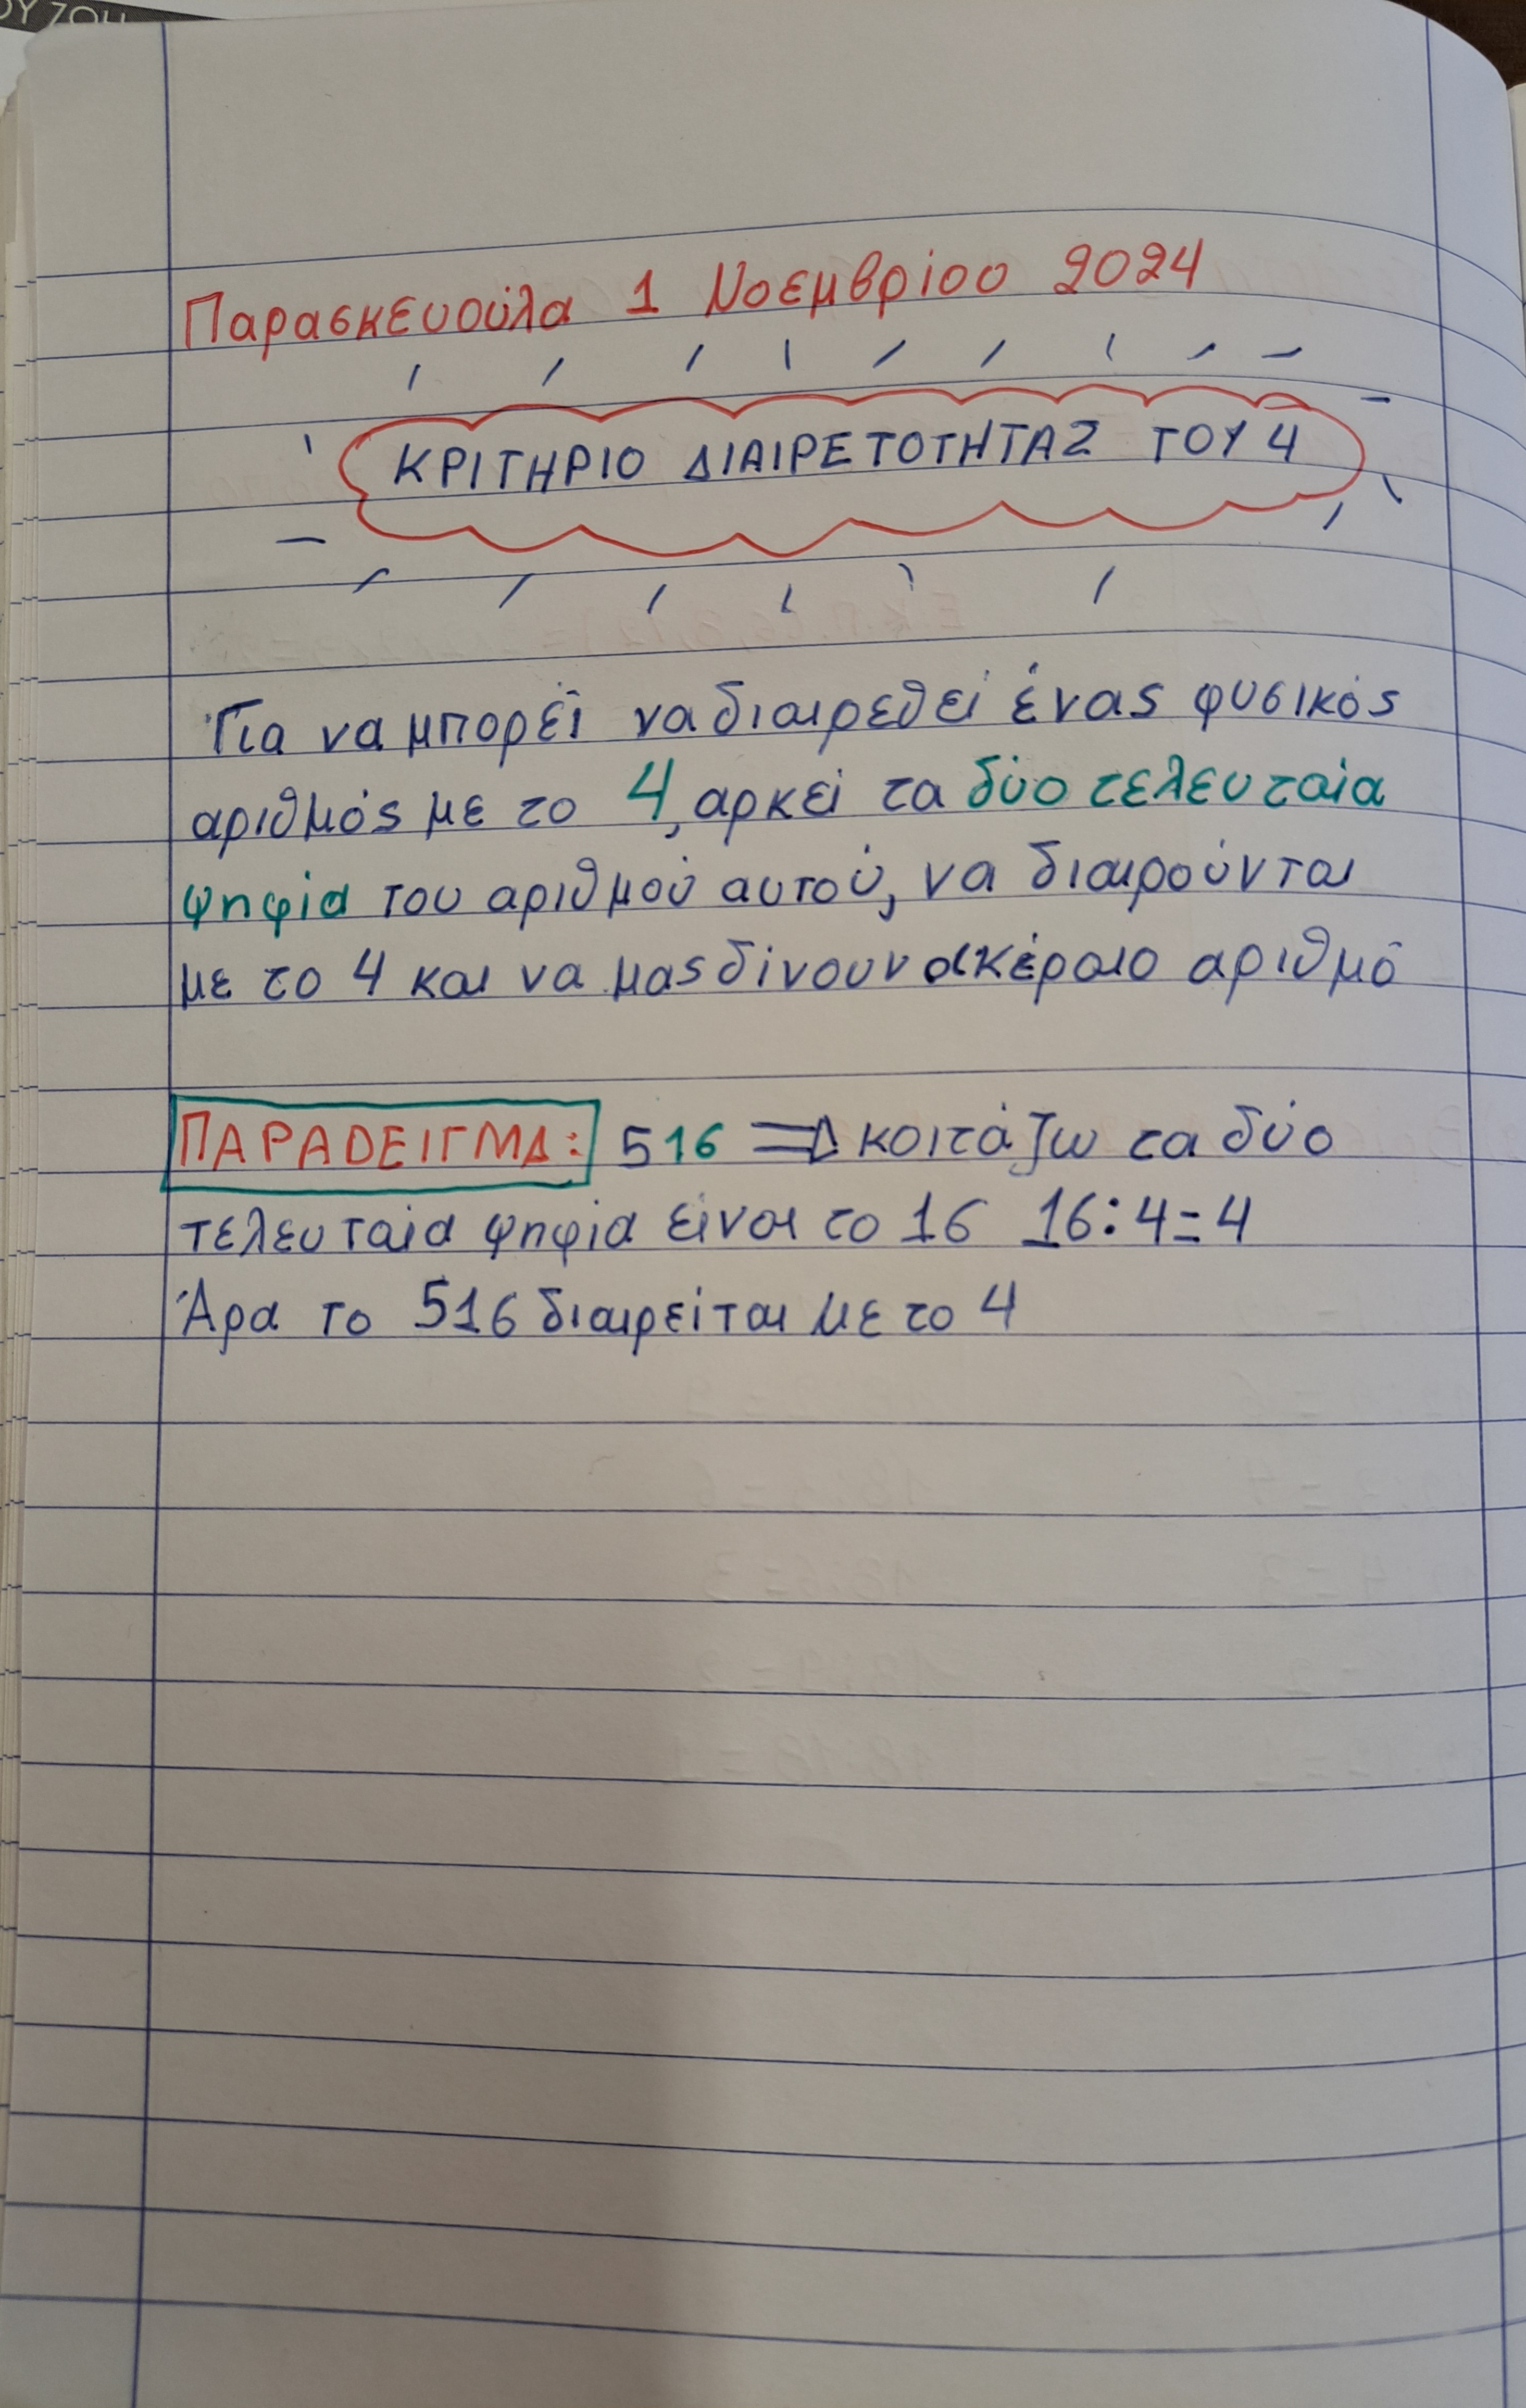 Παρασκευούλα 1 Νοεμβρίου 2024
ΚΡΙΤΗΡΙΟ ΔΙΑΙΡΕΤΟΤΗΤΑΣ ΤΟΥ 4
Για να μπορεί να διαιρεθεί ένας φυσικός
αριθμός με το 4, αρκεί τα δύο τελευταία
ψηφία του αριθμού αυτού, να διαιρούνται
με το 4 και να μας δίνουν ακέραιο αριθμό
ΠΑΡΑΔΕΙΓΜΑ: 516 ⇒ κοιτάζω τα δύο
τελευταία ψηφία είναι το 16 16:4=4
Άρα το 516 διαιρείται με το 4